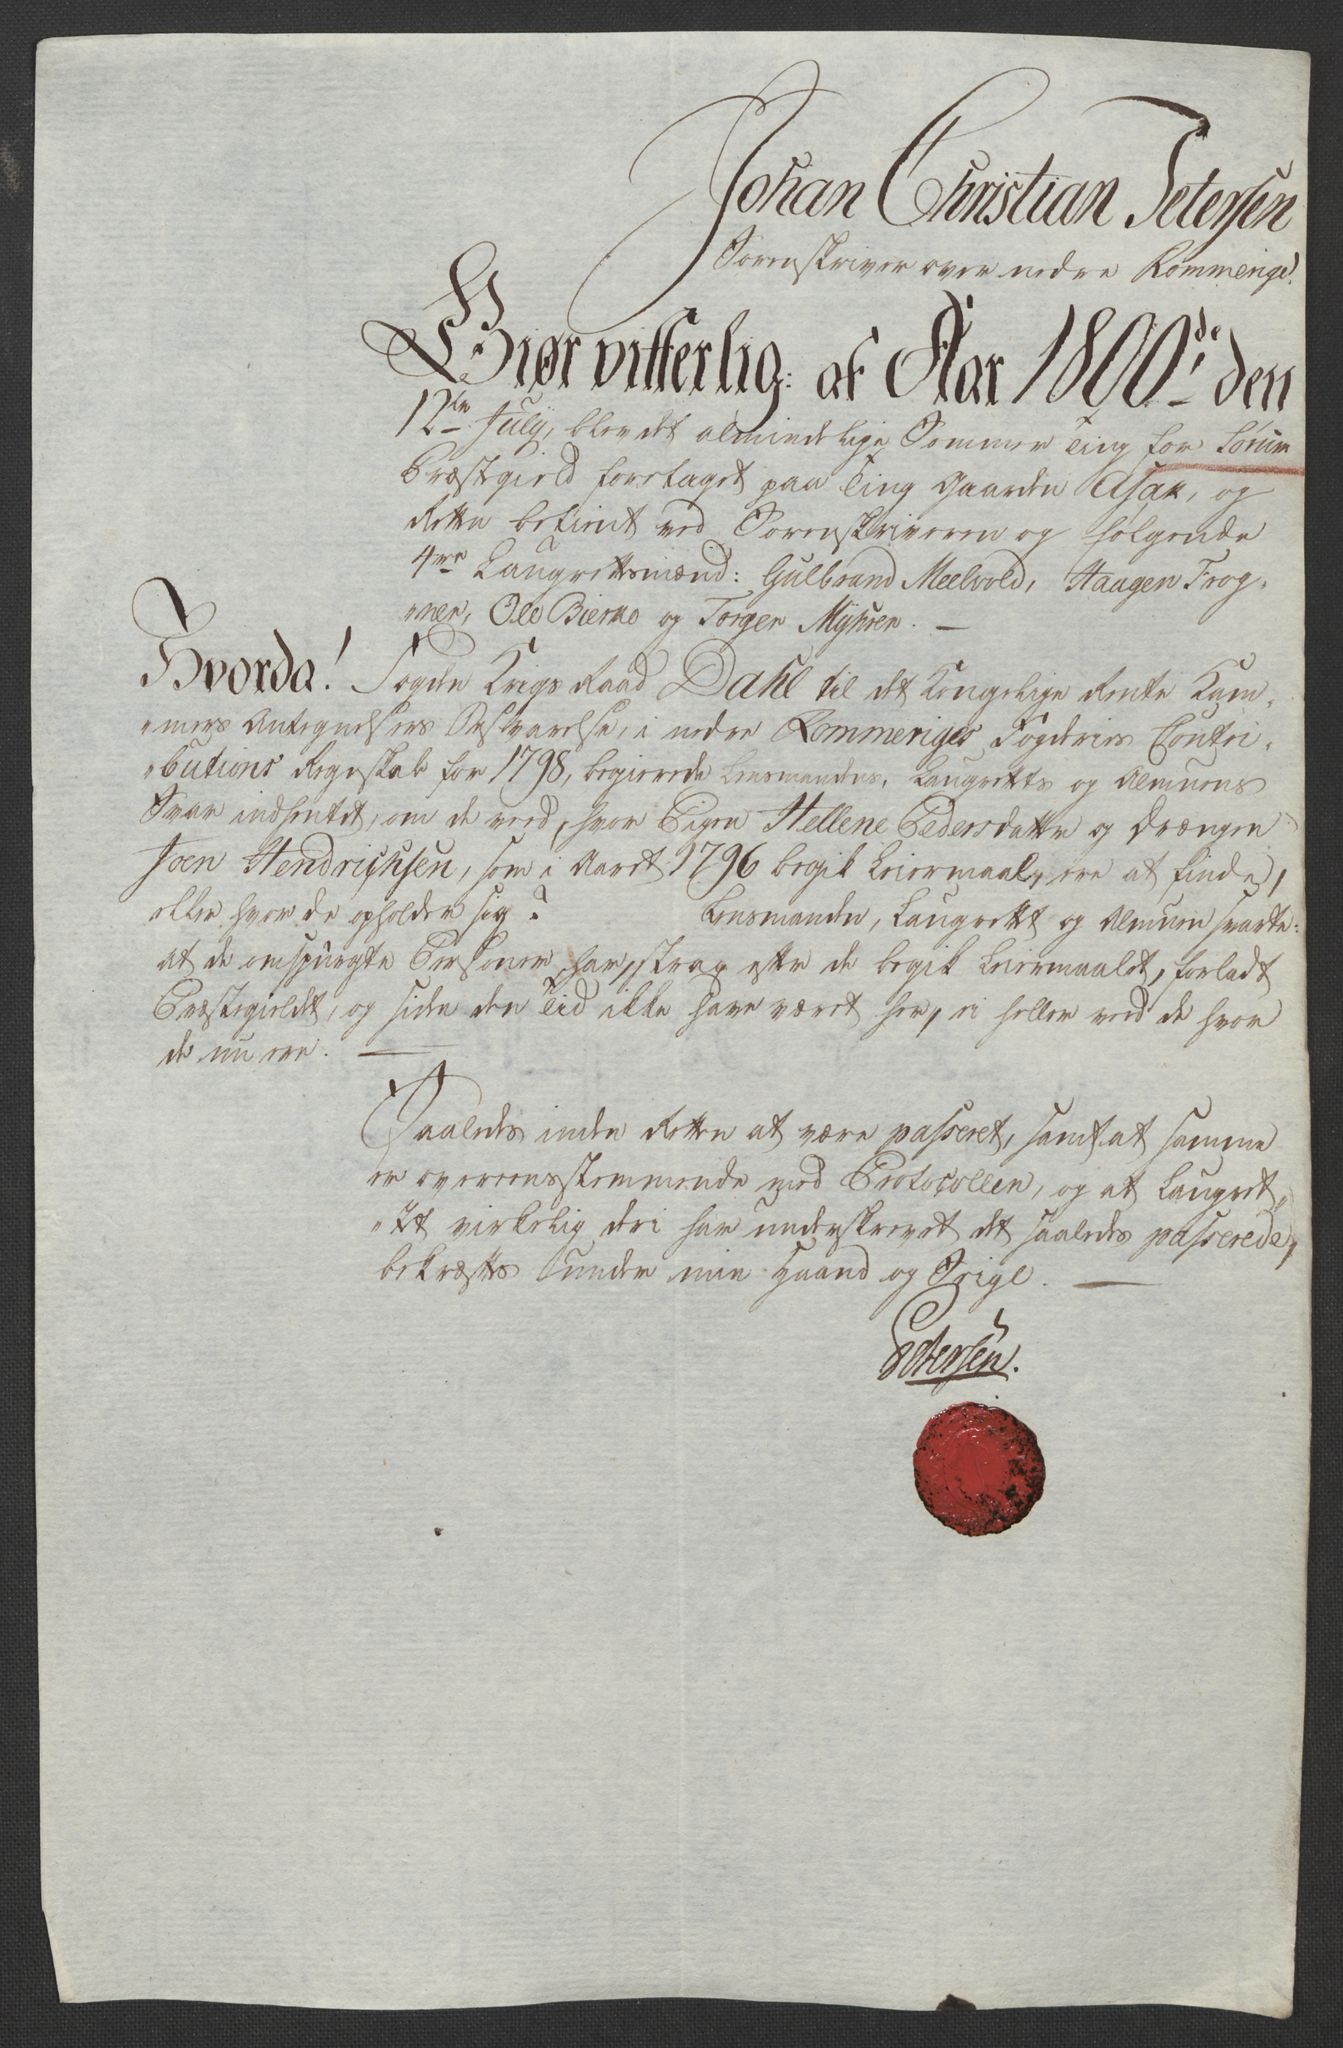 Johan Christian Petersen
Sorenskriver over nedre Rommerige.
Giør vitterlig: at Aar 1800de den
12te July, blev det almindelige Sommer Ting for Sørum
Præstegield foretaget paa Ting Gaarden Asak, og
Retten betient ved Sorenskriveren og følgende
4re Laugrettsmænd: Gulbrand Meelvold, Haagen Frog-
ner, Ole Bierke og Torger Myhrer. —
Hvorda! Fogden Krigs Raad Dahl til det Kongelige Rente Kam-
mers Antegnelsers Besvarelse, i nedre Rommeriges Fogderies Contri-
butions Regnskab for 1798, begierede Lensmandens, Laugretts og Almuens
Svar indhentet, om de veed, hvor Pigen Hellene Pedersdatter og Drængen
Joen Hendrichsen, som i Aaret 1796 begik Leiermaal, ere at finde,
eller hvor de opholder sig? Lensmanden, Laugrett og Almuen svarte:
at de omspurgte Personer, har, strax efter de begik Leiermaalet, forladt
Præstegieldet, og siden den Tid ikke have været her, ei heller veed de hvor
de nu ere. —
Saaledes inden Retten at være passeret, samt at samme
er overeensstemmende med Protocollen, og at Laugret-
tet virkelig deri har underskrevet det saaledes passerede,
bekræftes under min Haand og Seigl. —
Petersen.